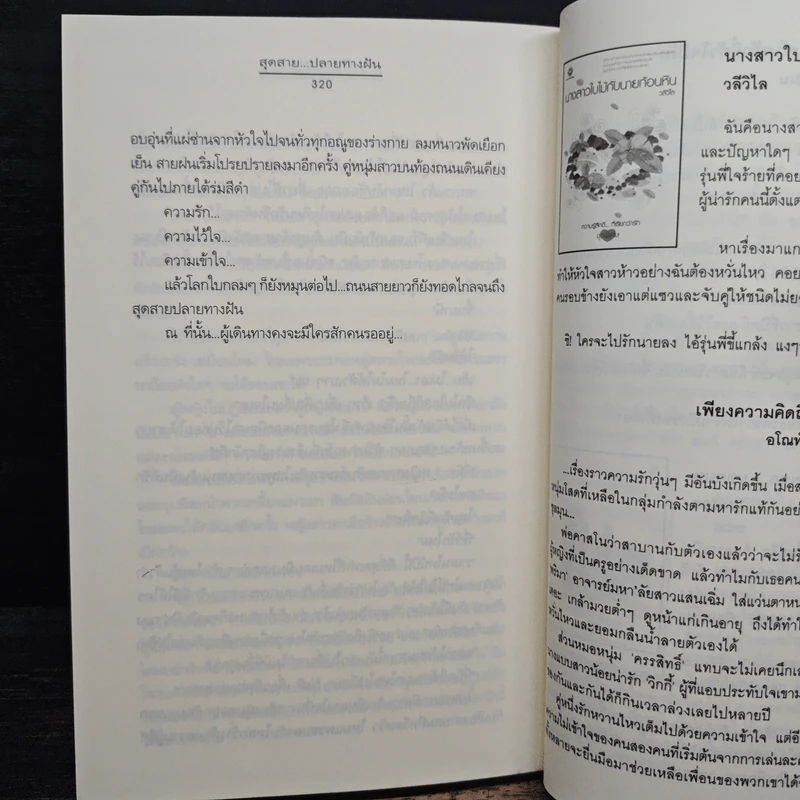 สุดสาย...ปลายทางฝัน
320
อบอุ่นที่แผ่ซ่านจากหัวใจไปจนทั่วทุกอณูของร่างกาย ลมหนาวพัดเยือก
เย็น สายฝนเริ่มโปรยปรายลงมาอีกครั้ง คู่หนุ่มสาวบนท้องถนนเดินเคียง
คู่กันไปภายใต้ร่มสีดำ
ความรัก...
ความไว้ใจ...
ความเข้าใจ...
แล้วโลกใบกลมๆ ก็ยังหมุนต่อไป...ถนนสายยาวก็ยังทอดไกลจนถึง
สุดสายปลายทางฝัน
ณ ที่นั้น...ผู้เดินทางคงจะมีใครสักคนรออยู่...
นางสาวใบไม้กับนายก้อนหิน
วลีวิไล
นางสาวใบ
วลีวิไล
ฉันคือนางสา
และปัญหาใดๆ
รุ่นพี่ใจร้ายที่คอย
ผู้น่ารักคนนี้ตั้งแต่
หาเรื่องมาแก
ทำให้หัวใจสาวห้าวอย่างฉันต้องหวั่นไหว คอย
คนรอบข้างยังเอาแต่แซวและจับคู่ให้ชนิดไม่ย
ชิ! ใครจะไปรักนายลง ไอ้รุ่นพี่ขี้แกล้ง แงๆ
เพียงความคิดถึ
อโณท
...เรื่องราวความรักวุ่นๆ มีอันบังเกิดขึ้น เมื่อส
หนุ่มโสดที่เหลือในกลุ่มกำลังตามหารักแท้กันอย่
ชุลมุน...
พ่อคาสโนว่าสาบานกับตัวเองแล้วว่าจะไม่รั
ผู้หญิงที่เป็นครูอย่างเด็ดขาด แล้วทำไมกับเธอคน
อาจารย์มหา'ลัยสาวแสนเฉิ่ม ใส่แว่นตาหน
เตอะ เกล้ามวยต่ำๆ ดูหน้าแก่เกินอายุ ถึงได้ทำใ
หวั่นไหวและยอมกลืนน้ำลายตัวเองได้
ส่วนหมอหนุ่ม 'ครรสิทธิ์' แทบจะไม่เคยนึกเล
นางแบบสาวน้อยน่ารัก 'วิกกี้' ผู้ที่แอบประทับใจเขามา
ของกันและกันได้ก็กินเวลาล่วงเลยไปหลายปี
คู่หนึ่งรักหวานไหวเต็มไปด้วยความเข้าใจ แต่อี
ความไม่เข้าใจของคนสองคนที่เริ่มต้นจากการเล่นละค
ทั้งหลายจะยื่นมือมาช่วยเหลือเพื่อนของพวกเขาได้